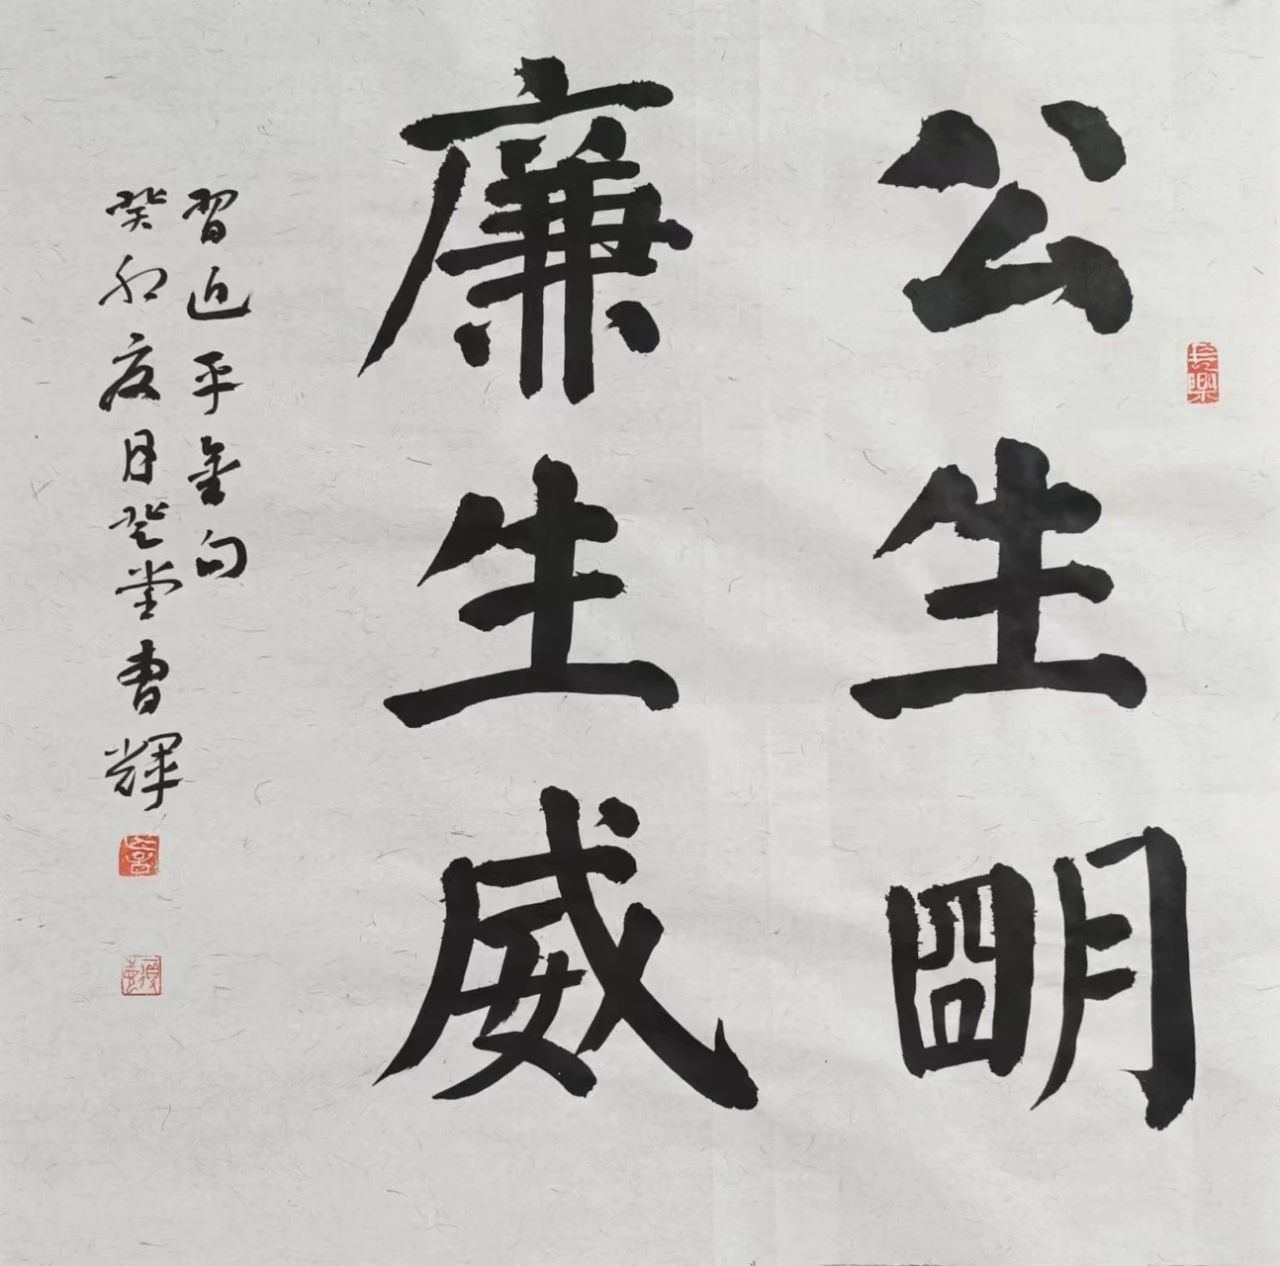 公生明
廉生威
習近平金句
癸卯夏月登堂曹輝
長樂